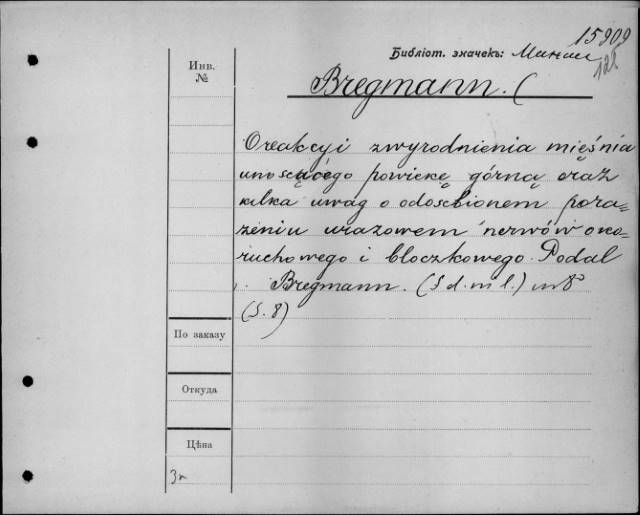 15909
Библіот. значекъ:
128
Инв.
№
Bregmann. (
O reakcyi zwyrodnienia mięśnia
unoszącego powiekę górną oraz
kilka uwag o odosobionem pora-
żeniu urazowem nerwów oko-
ruchowego i bloczkowego. Podal
Bregmann. (S d. m l.) in 8°
(S. 8)
По заказу
Откуда
Цѣна
3 r